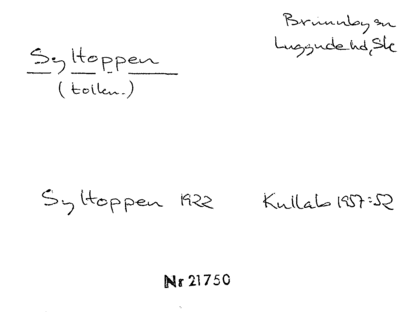 Syltoppen
(tolkn.)
Brunnby sn
Luggude hd, Sk
Syltoppen 1922 Kullab 1957:52
Nr 21750